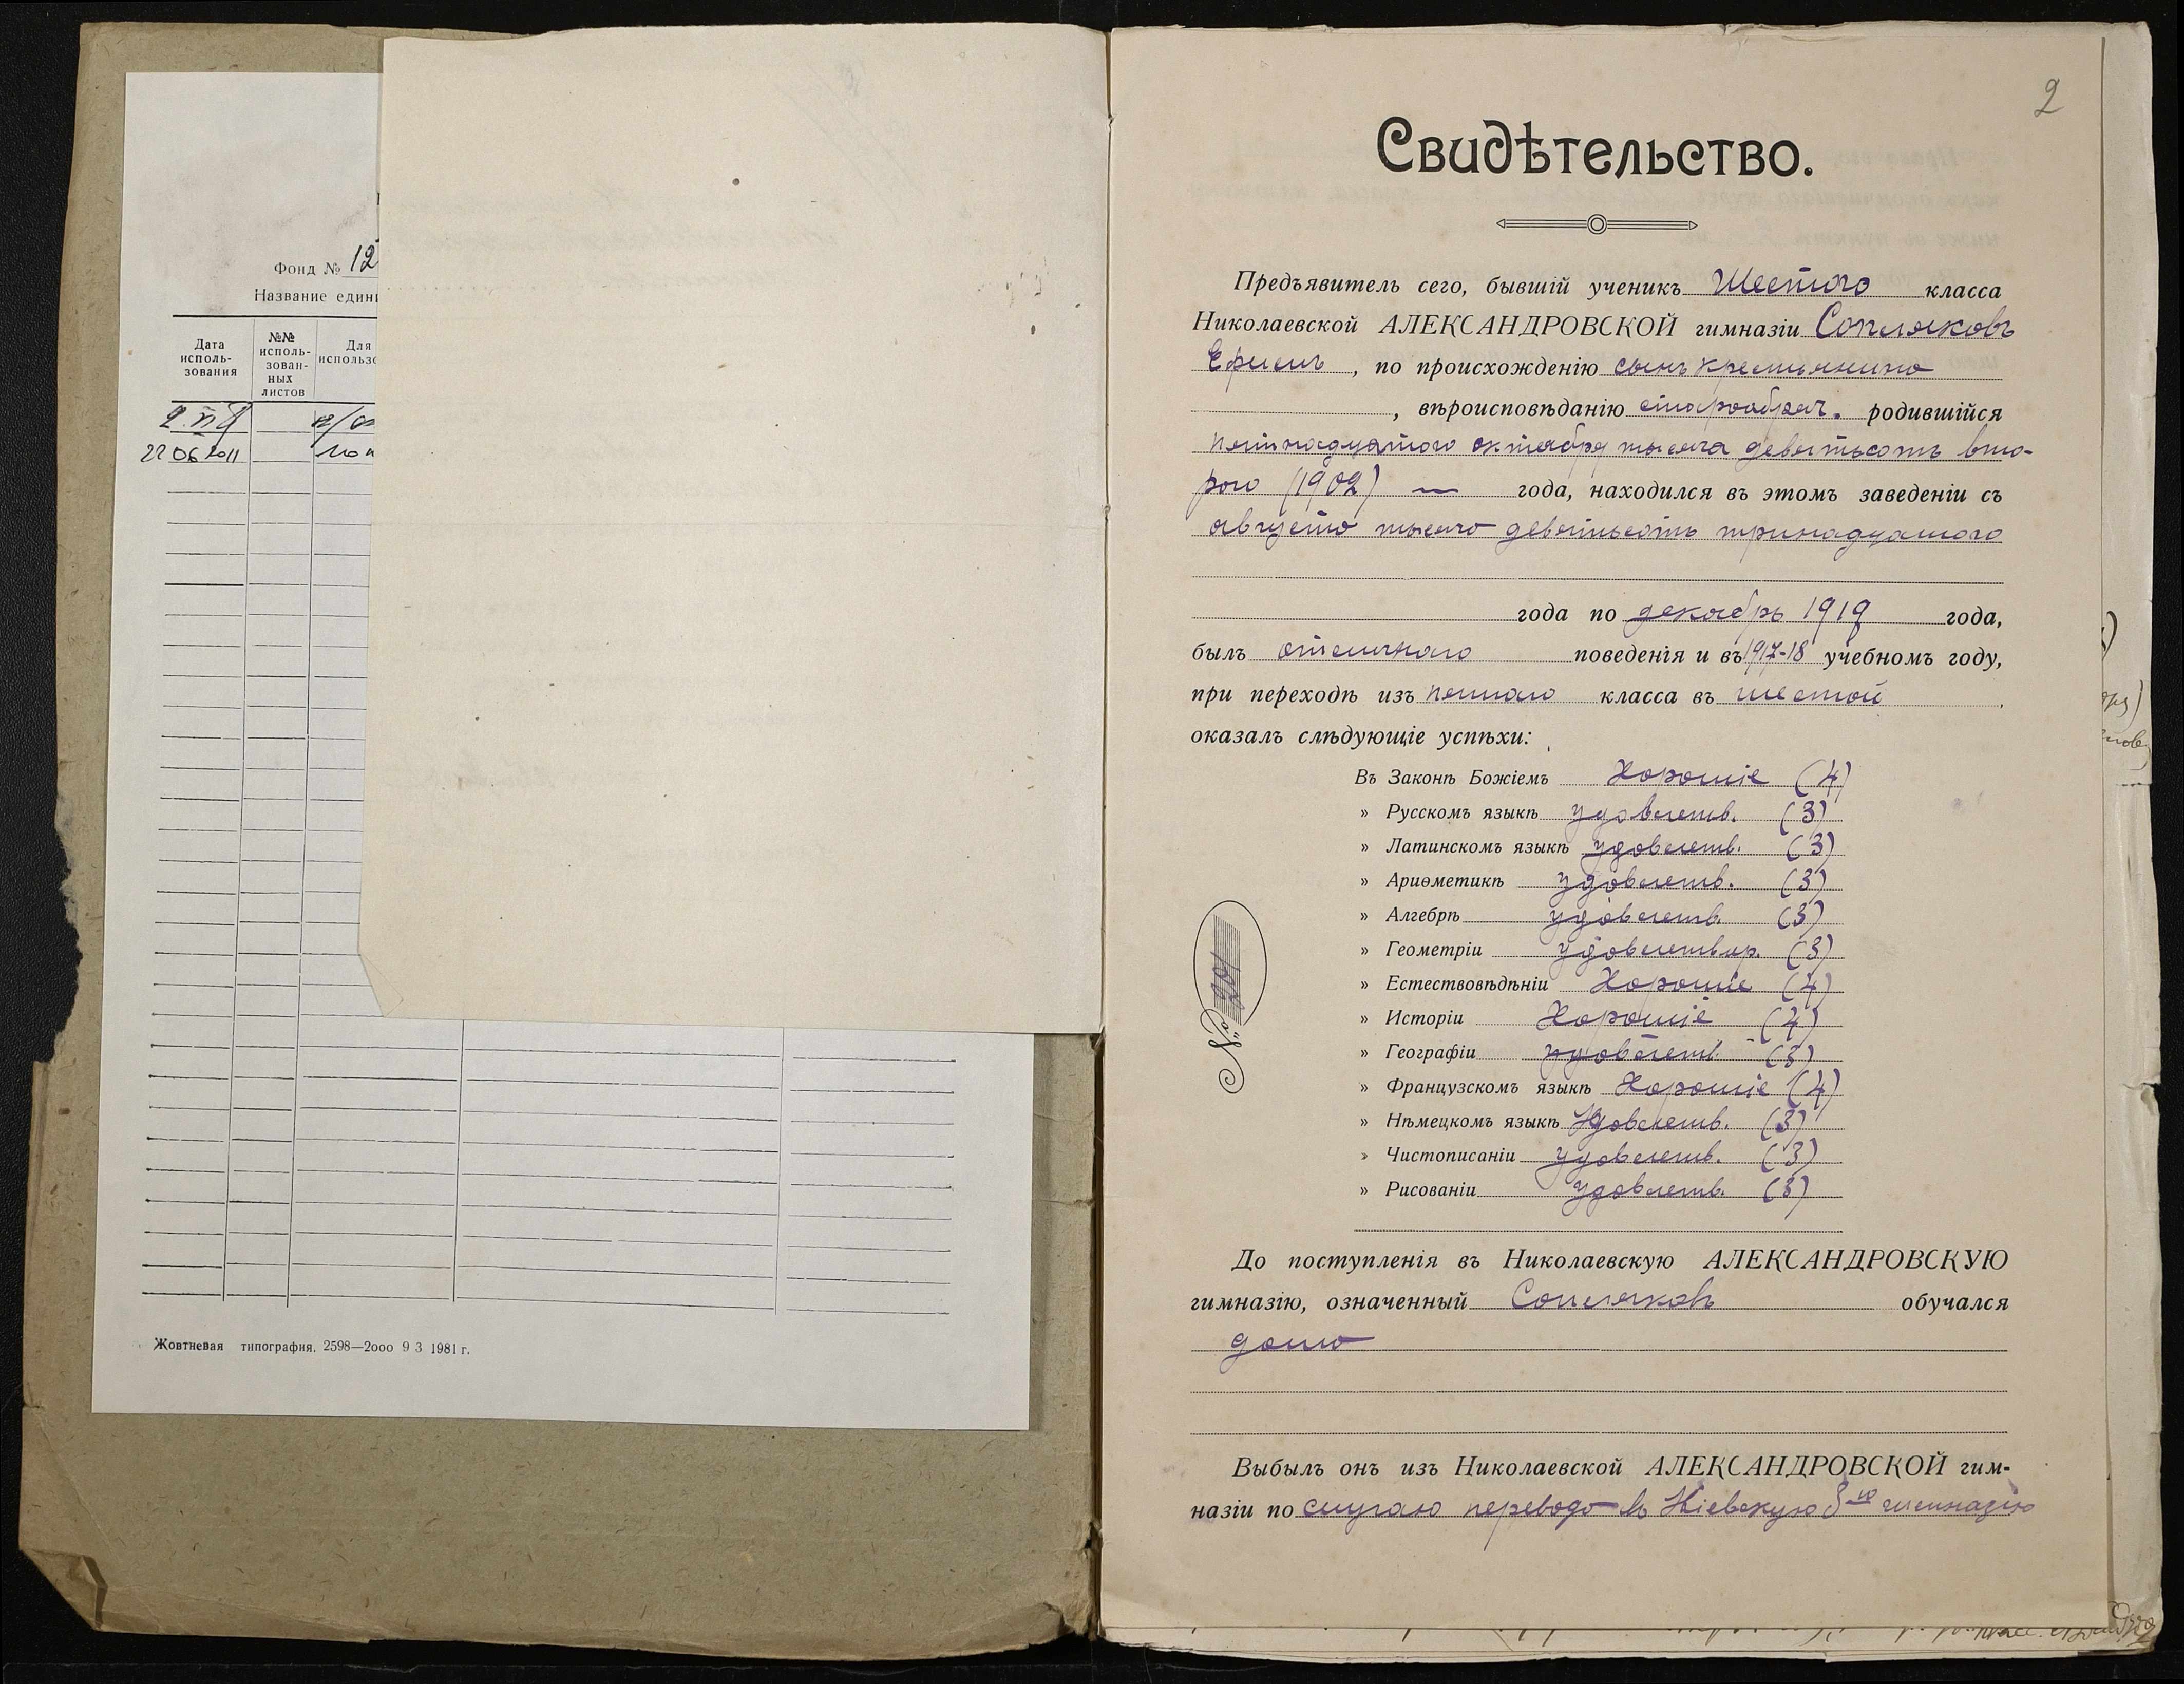 Фонд № 12
Название едини
Дата исполь- зования
№№ исполь- зован- ных листов
Для использо
22 06 2011
Жовтневая типография. 2598—2ооо 9 3 1981 г.
2
Свидѣтельство.
Предъявитель сего, бывшій ученикъ Шестого класса
Николаевской АЛЕКСАНДРОВСКОЙ гимназіи Сопляковъ
Ефимъ, по происхожденію сынъ крестьянина
, вѣроисповѣданію старообряд. родившійся
пятнадцатого октября тысяча девятьсотъ вто-
рого (1902) — года, находился въ этомъ заведеніи съ
августа тысяча девятьсотъ тринадцатого
года по декабрь 1919 года,
былъ отличнаго поведенія и въ 1917-18 учебномъ году,
при переходѣ изъ пятаго класса въ шестой
оказалъ слѣдующіе успѣхи:
Въ Законѣ Божіемъ Хорошіе (4)
» Русскомъ языкѣ удовлетв. (3)
» Латинскомъ языкѣ удовлетв. (3)
» Ариѳметикѣ удовлетв. (3)
» Алгебрѣ удовлетв. (3)
» Геометріи удовлетвор. (3)
» Естествовѣдѣніи Хорошіе (4)
» Исторіи Хорошіе (4)
» Географіи удовлетв. (3)
» Французскомъ языкѣ Хорошіе (4)
» Нѣмецкомъ языкѣ Удовлетв. (3)
» Чистописаніи удовлетв. (3)
» Рисованіи удовлетв. (3)
№ 201
До поступленія въ Николаевскую АЛЕКСАНДРОВСКУЮ
гимназію, означенный Сопляковъ обучался
дома
Выбылъ онъ изъ Николаевской АЛЕКСАНДРОВСКОЙ гим-
назіи по случаю перевода въ Кіевскую 8-ю гимназію